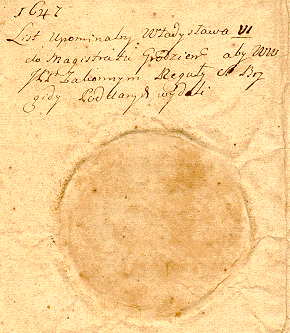 1647
List Upominalny Władysława VI
do Magistratu Grodzień aby WW
Zakonnym Reguły S. Bry
gidy wydali